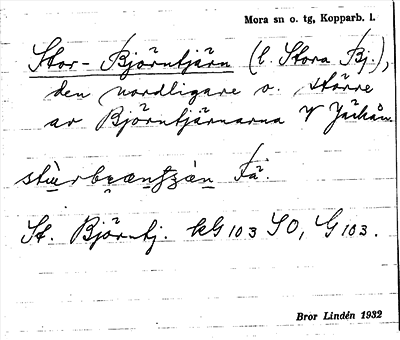 Mora sn o. tg, Kopparb. l.
Stor-Björntjärn (l. Stora Bj.),
den nordligare o. större
av Björntjärnarna V
Få.
St. Björntj. kG 103 SO, G 103.
Bror Lindén 1932